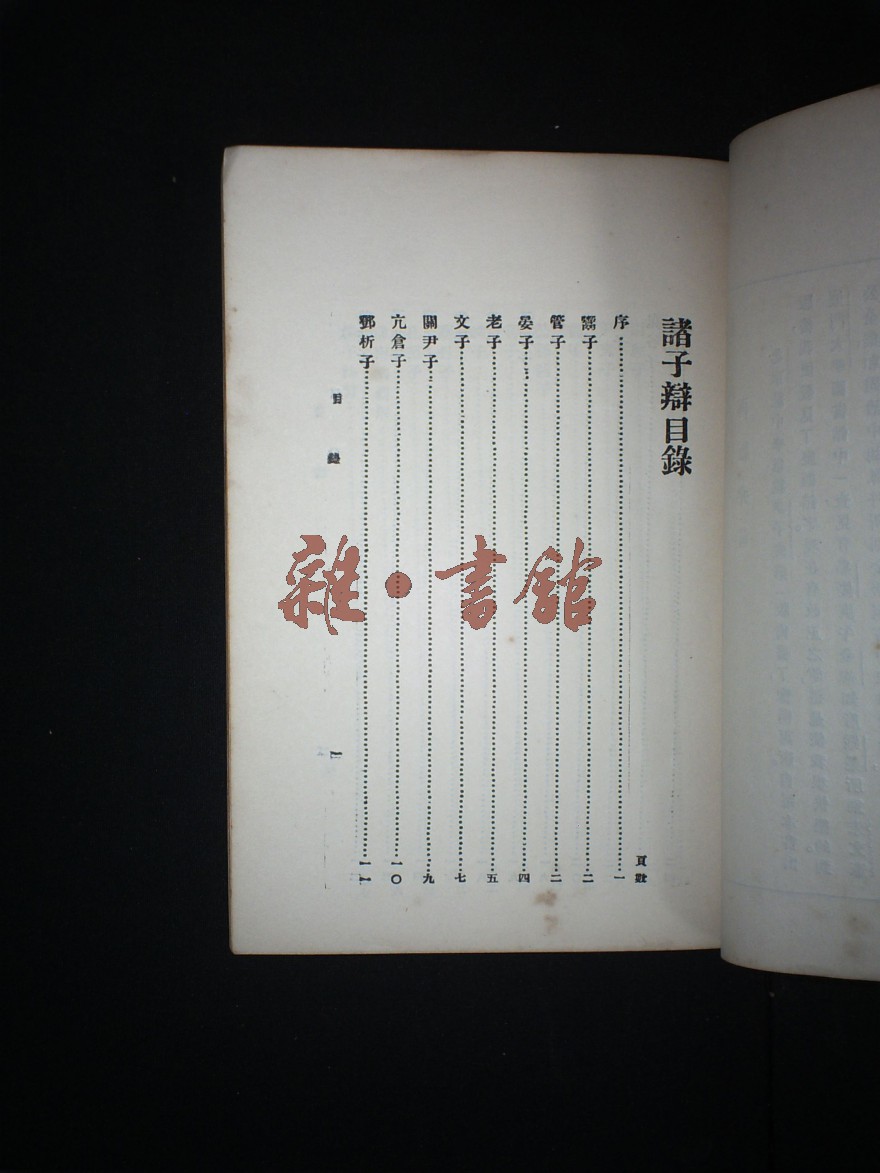 諸子辯目錄
頁數
序……一
鬻子……二
管子……二
晏子……四
老子……五
文子……七
關尹子……九
亢倉子……一〇
鄧析子……一一
目錄 一
雜·書館